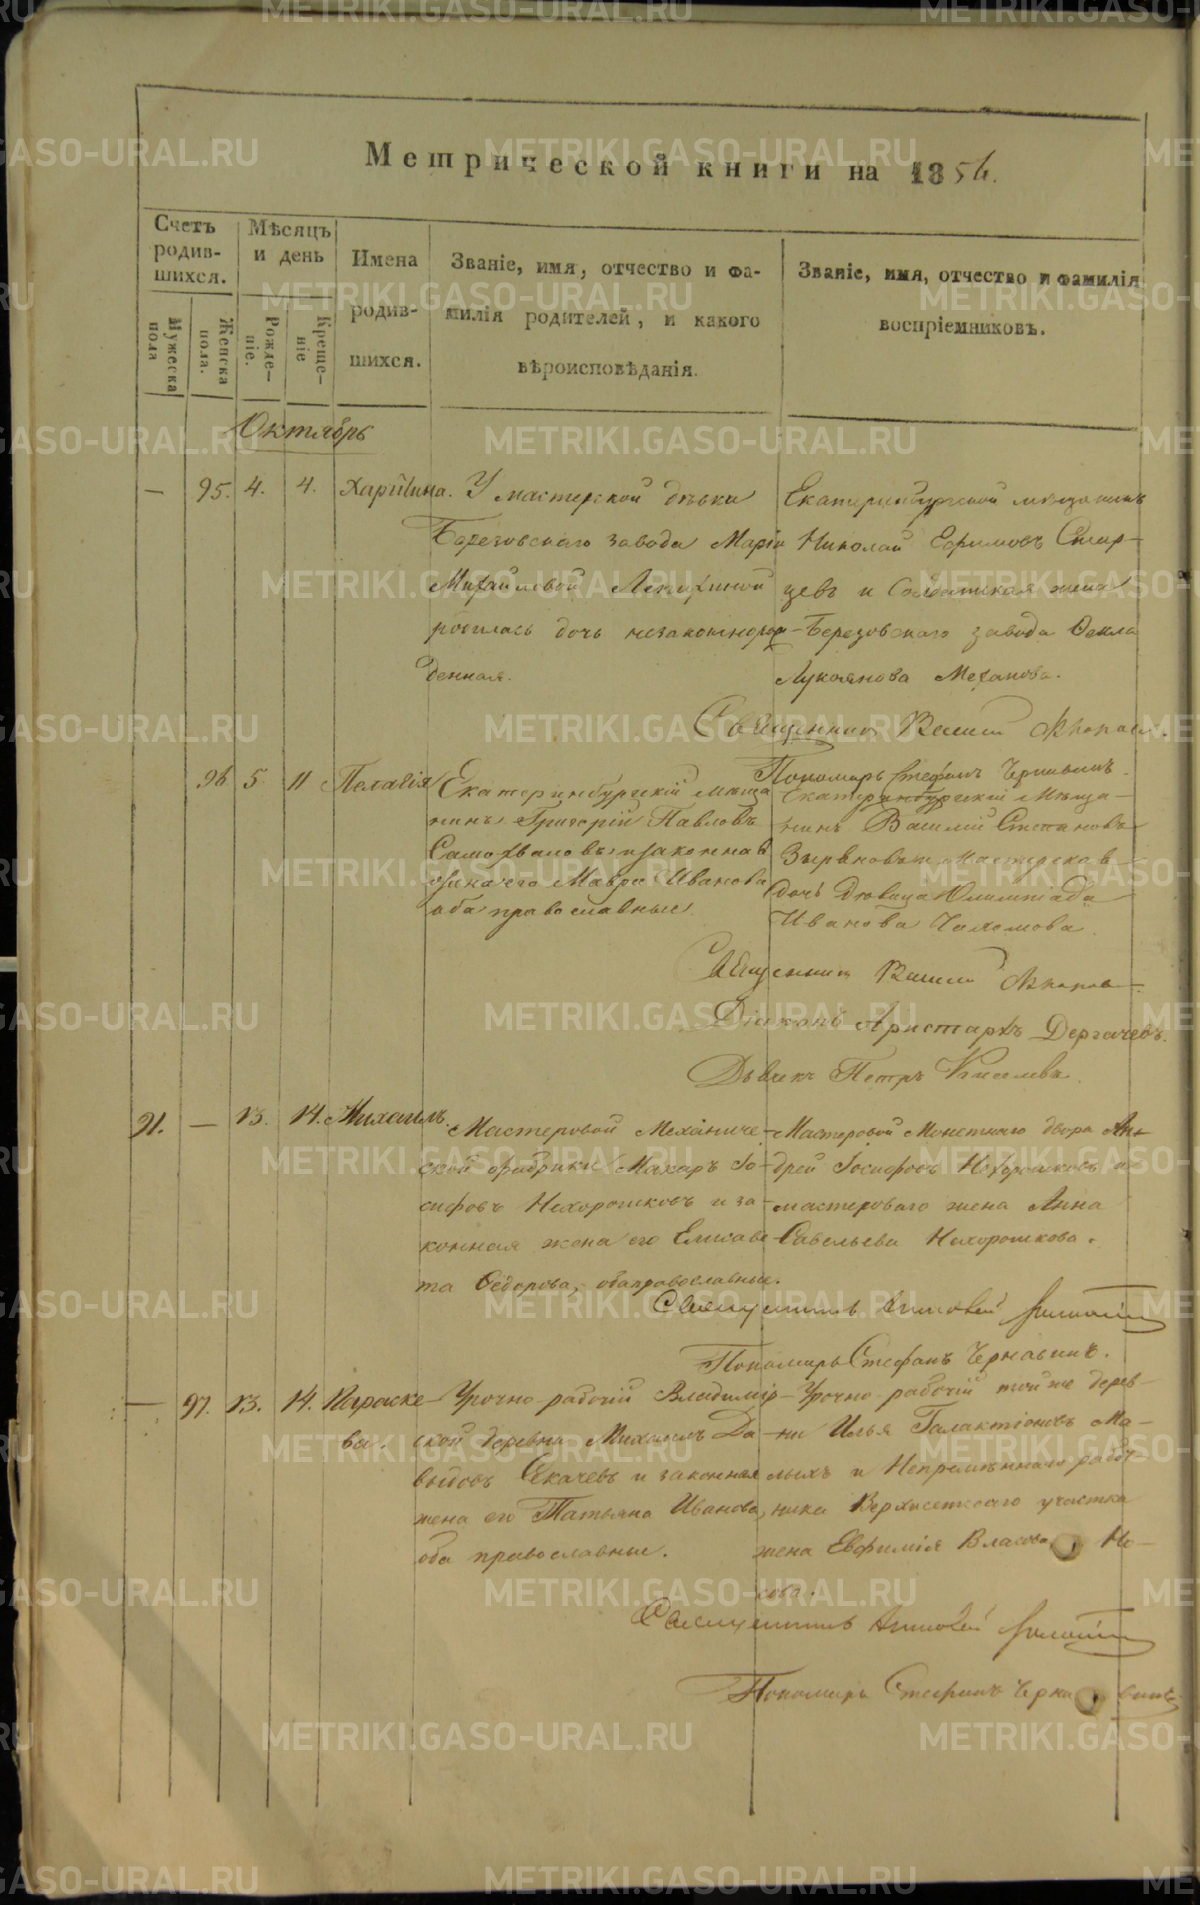 Метрической книги на 1856.
Счетъ родив-шихся.
Мѣсяцъ и день
Имена родив-шихся.
Званіе, имя, отчество и фа-
милія родителей, и какого
вѣроисповѣданія.
Званіе, имя, отчество и фамилія
воспріемниковъ.
Мужеска пола
Женска пола.
Рожде-ніе.
Креще-ніе
Октябрь
— 95. 4. 4. Харитина.
У мастерской дѣвки
Березовскаго завода Маріи
Михайловой
родилась дочь незаконнорож-
денная.
Екатеринбургской мѣщанинъ
Николай Ефимовъ
и Солдатская жена
Березовскаго завода Фекла
Лукоянова Механова.
Священникъ Василій
Пономарь Стефанъ Чернавинъ.
96 5. 11 Пелагія
Екатеринбургскій мѣща
нинъ Григорій Павловъ
Самохваловъ и законная
жена его Мавра Иванова
оба православные.
Екатеринбургскій Мѣща-
нинъ Василій Степановъ
Зыряновъ и Мастерска
дочь дѣвица Олимпіада
Иванова Пахомова.
Священникъ Василій
Діаконъ Аристархъ Дергачевъ.
Дьячекъ Петръ Киселевъ
91. — 13. 14. Михаилъ.
Мастеровой Механиче-
ской фабрики Макаръ Іо-
сифовъ Нехорошковъ и за-
конная жена его Елисаве-
та Ѳедорова, оба православные.
Мастеровой Монетнаго двора Ан-
дрей Іосифовъ Нехорошковъ и
мастероваго жена Анна
Савельева Нехорошкова.
Священникъ
Пономарь Стефанъ Чернавинъ.
— 97. 13. 14. Параске-
ва.
Урочно-рабочій Владимір-
ской деревни Михаилъ Да-
выдовъ Секачевъ и законная
жена его Татьяна Иванова,
оба православные.
Урочно-рабочій той же дерев-
ни Илья Галактіоновъ Ма-
лыхъ и Непремѣннаго работ-
ника Верхисетскаго участка
жена Евфимія Власова Но-
сова.
Священникъ
Пономарь Стефанъ Чернавинъ
METRIKI.GASO-URAL.RU